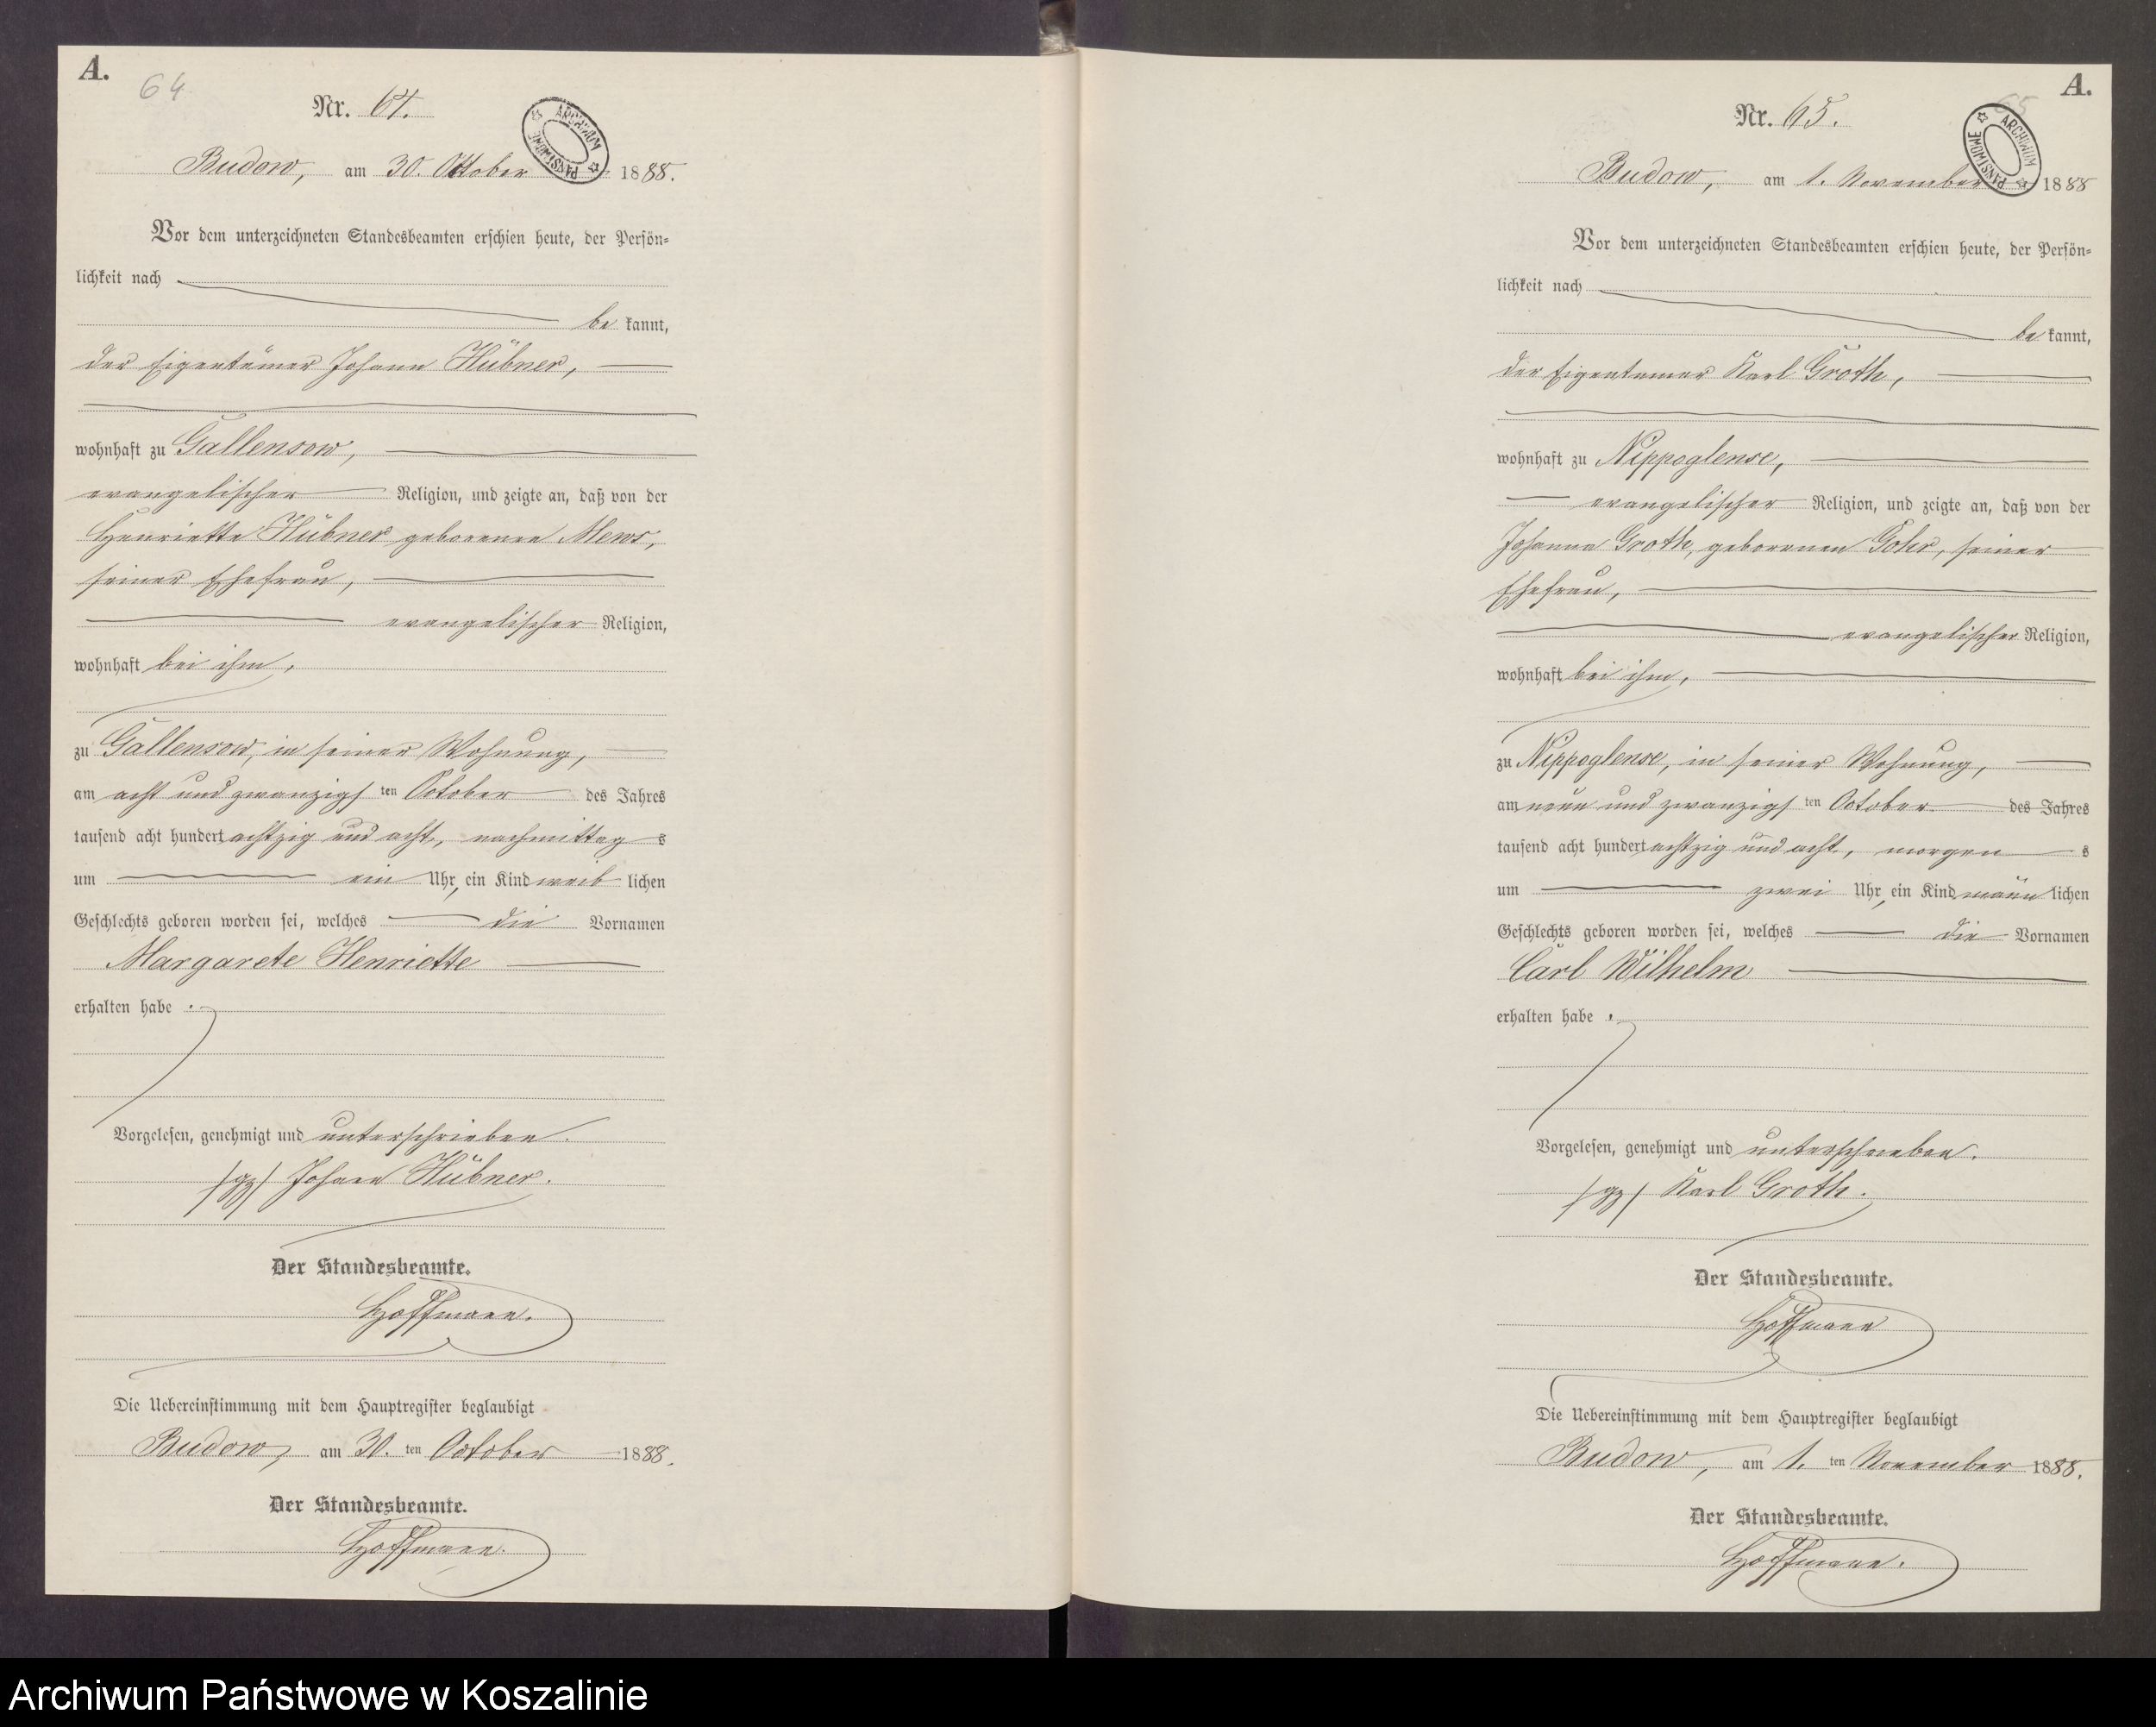 A.
64
Nr. 64.
ARCHIWUM PAŃSTWOWE
Budow, am 30. Oktober 1888.
Vor dem unterzeichneten Standesbeamten erschien heute, der Persön-
lichkeit nach
be kannt,
der Eigentümer Johann Hübner,
wohnhaft zu Gallensow,
evangelischer Religion, und zeigte an, daß von der
Henriette Hübner geborenen Mews,
seiner Ehefrau,
evangelischer Religion,
wohnhaft bei ihm,
zu Gallensow, in seiner Wohnung,
am acht und zwanzigsten October des Jahres
tausend acht hundert achtzig und acht, nachmittags
um ein Uhr, ein Kind weiblichen
Geschlechts geboren worden sei, welches die Vornamen
Margarete Henriette
erhalten habe.
Vorgelesen, genehmigt und unterschrieben.
/gz/ Johann Hübner.
Der Standesbeamte.
Hoffmann.
Die Uebereinstimmung mit dem Hauptregister beglaubigt
Budow, am 30. ten October 1888.
Der Standesbeamte.
Hoffmann.
A.
65
Nr. 65.
ARCHIWUM PAŃSTWOWE
Budow, am 1. November 1888
Vor dem unterzeichneten Standesbeamten erschien heute, der Persön-
lichkeit nach
be kannt,
der Eigentumer Karl Groth,
wohnhaft zu Nippoglense,
evangelischer Religion, und zeigte an, daß von der
Johanna Groth, geborenen Gohr, seiner
Ehefrau,
evangelischer Religion,
wohnhaft bei ihm,
zu Nippoglense, in seiner Wohnung,
am neun und zwanzigsten October des Jahres
tausend acht hundert achtzig und acht, morgens
um zwei Uhr, ein Kind männlichen
Geschlechts geboren worden sei, welches die Vornamen
Carl Wilhelm
erhalten habe.
Vorgelesen, genehmigt und unterschrieben.
/gz/ Karl Groth.
Der Standesbeamte.
Hoffmann
Die Uebereinstimmung mit dem Hauptregister beglaubigt
Budow, am 1. ten November 1888.
Der Standesbeamte.
Hoffmann.
Archiwum Państwowe w Koszalinie